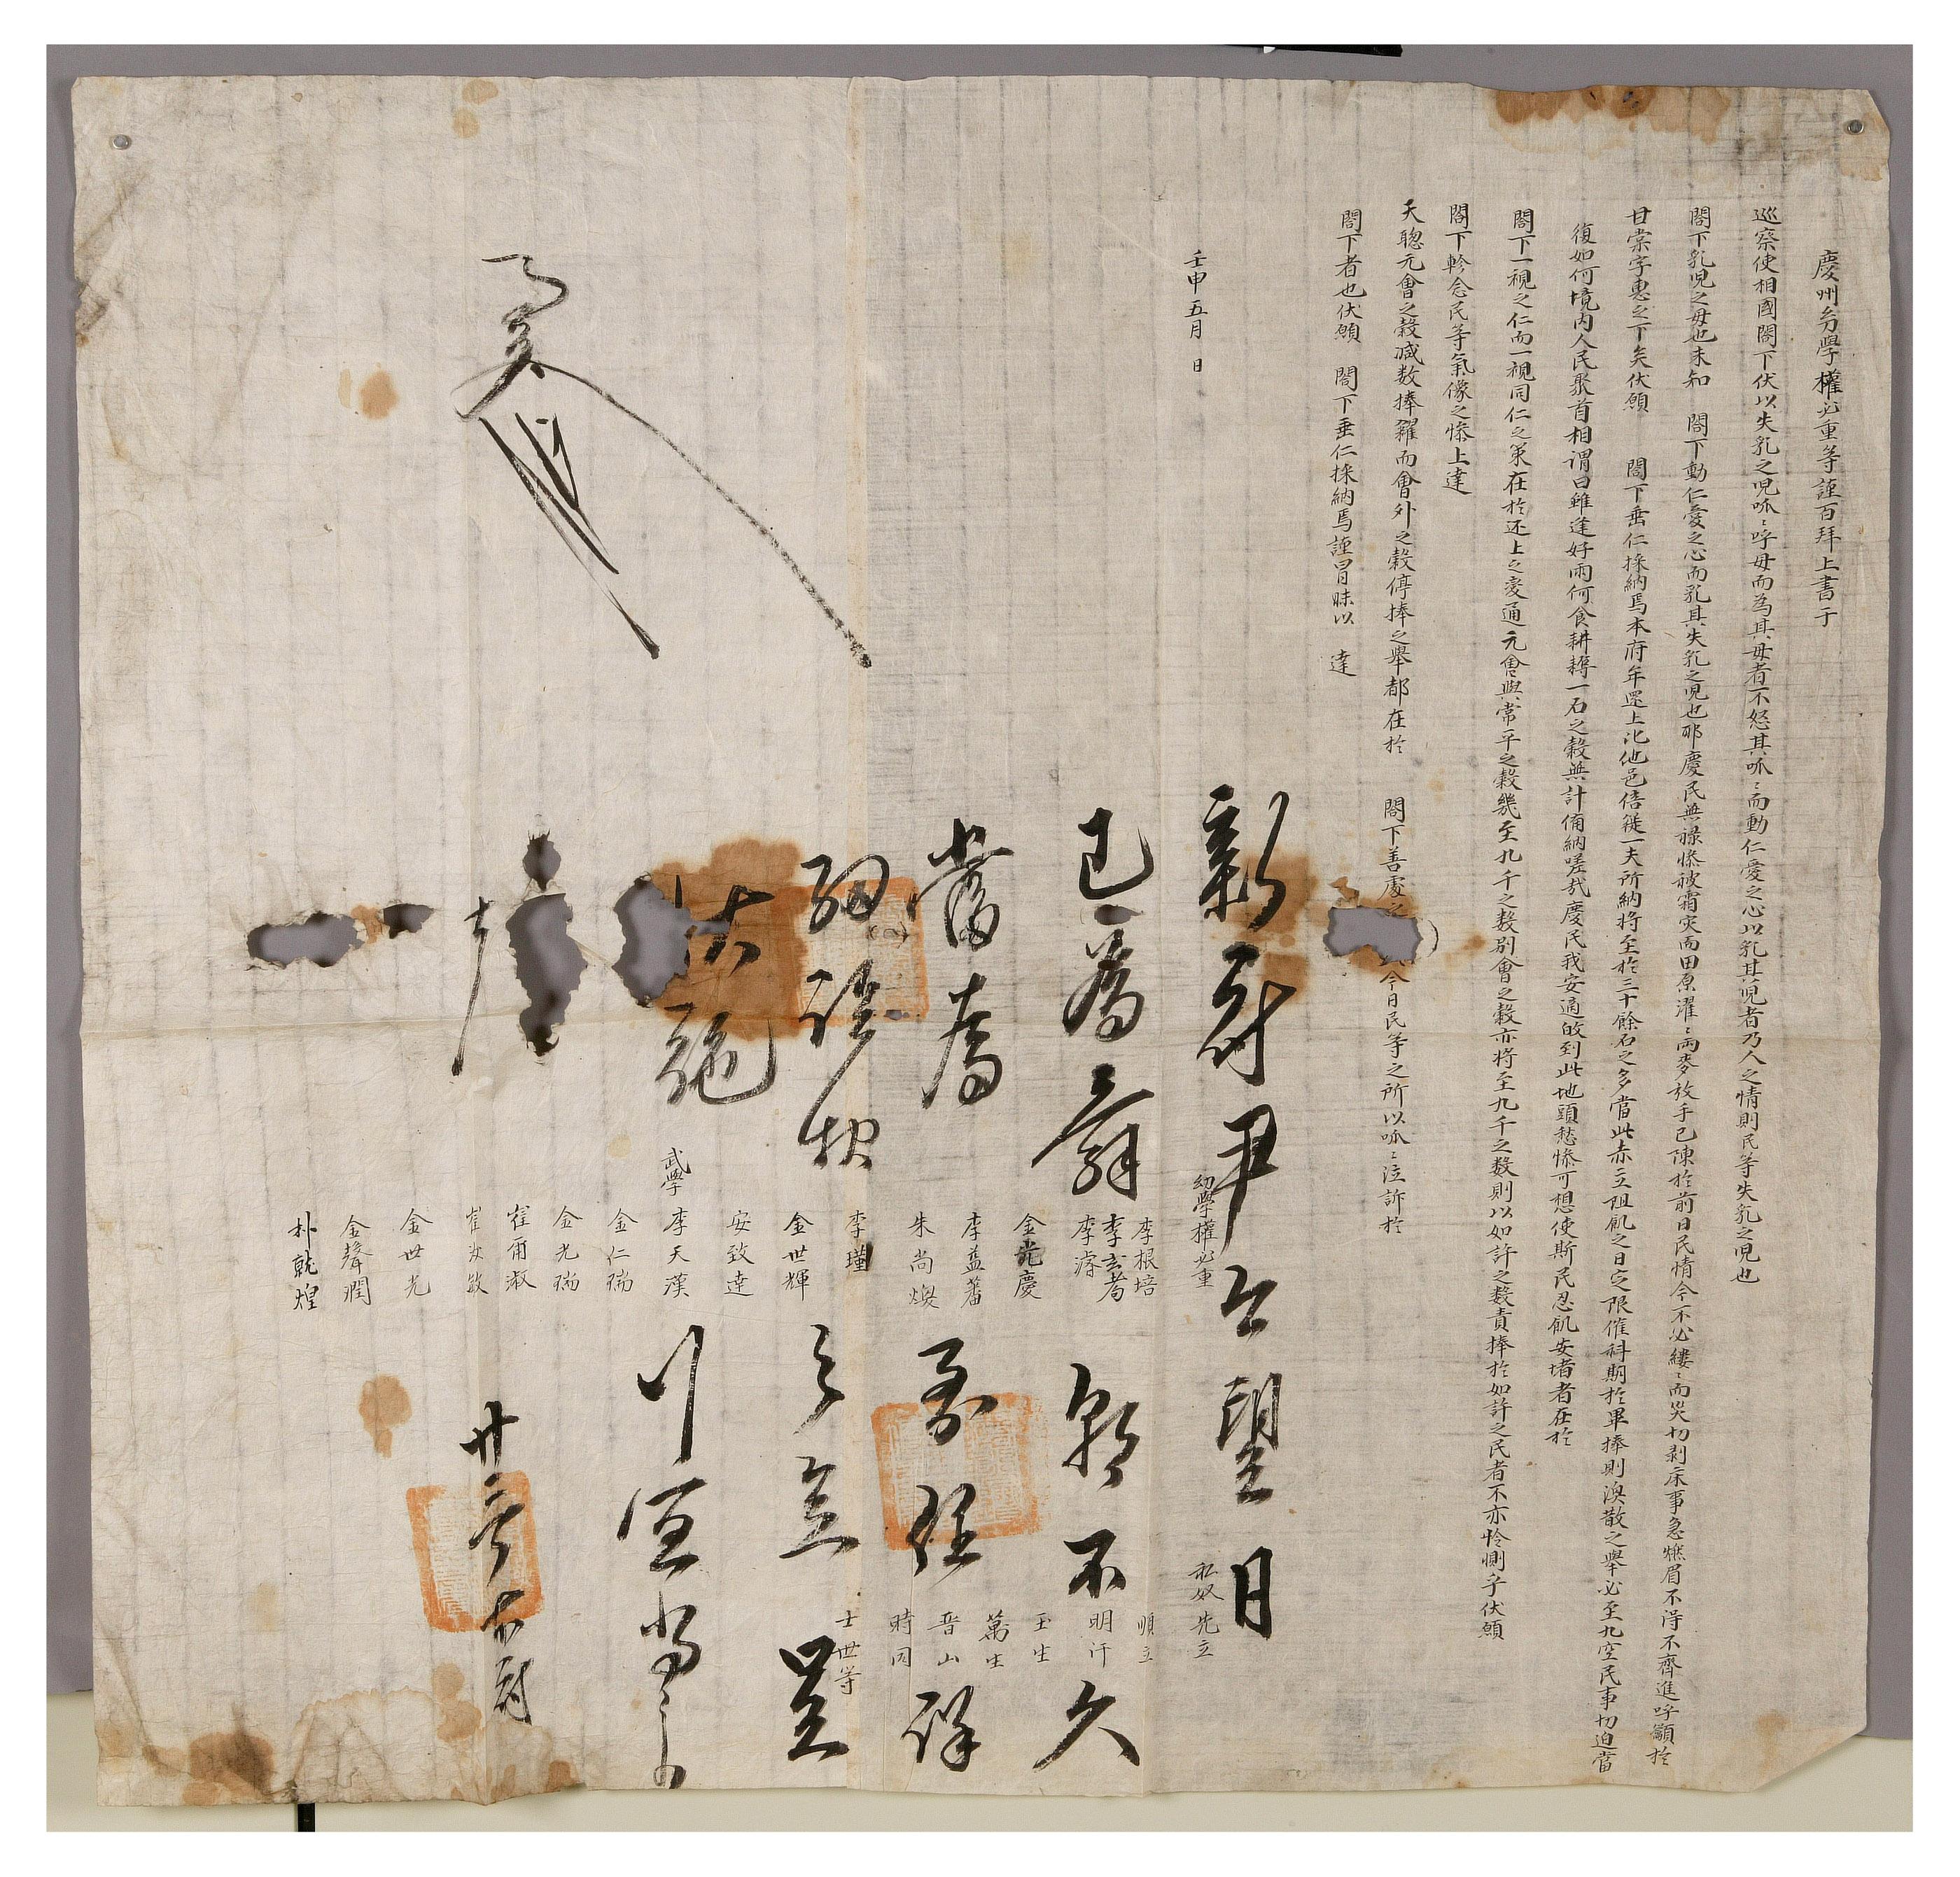 慶州幼學權必重等謹百拜上書于
巡察使相國閤下伏以失乳之児呱〻呼母而為其母者不怒其呱〻而動仁愛之心以乳其児者乃人之情則民等失乳之児也
閤下乳児之母也未知 閤下動仁愛之心而乳其失乳之児也耶慶民無祿慘被霜灾而田原濯〻両麥放手已陳於前日民情今不必縷〻而災切剥床事急燃眉不得不齊進呼籲於
甘棠字惠之下矣伏願 閤下垂仁採納焉本府年還上比他邑倍蓰一夫所納將至於三十餘石之多當此赤立阻飢之日定限催科期於畢捧則渙散之舉必至九空民事切迫當
復如何境内人民聚首相謂曰雖逢好雨何食耕耨一石之穀無計備納嗟哉慶民我安適皈到此地頭愁慘可想使斯民忍飢安堵者在於
閤下一視之仁而一視同仁之策在於还上之変通元會與常平之穀幾至九千之数别會之穀亦將至九千之数則以如許之穀責捧於如許之民者不亦怜惻乎伏願
閤下軫念民等氣像之慘上達
天聰元會之穀减数捧糴而會外之穀停捧之舉都在於 閤下善處之 今日民等之所以呱〻泣訴於
閤下者也伏願 閤下垂仁採納焉謹冒昧以 達
壬申五月 日
幼學權必重
李根培
李玄耇
李濬
金龍慶
李藎蕃
朱尚煥
李瑾
金世輝
安致達
武學 李天漢
金仁瑞
金光瑞
崔爾淑
崔汝敏
金世光
金聲潤
朴就煌
私奴先立
順立
明汗
玉生
萬生
晋山
時同
士世等
新府尹今望日
已為辭朝不久
當為到任詳
細論報之意
宜當向
廿六日 在府
使